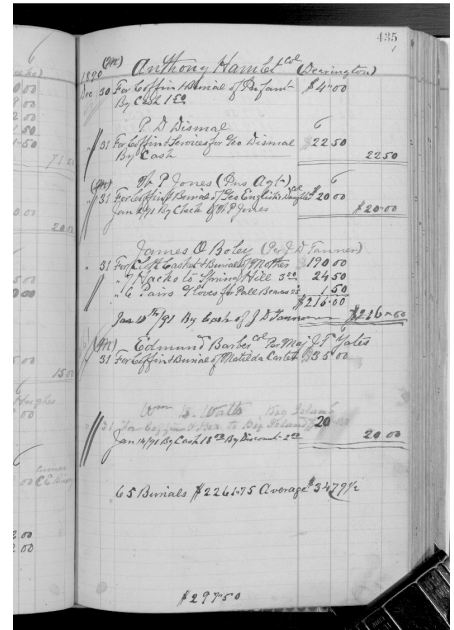 435
1890 (M) Anthony Hamlet Col (Deerington)
Dec 30 For Coffin & Burial of Infant $4.00
By Cash 1.50
P. D Dismal 6
31 For Coffin & Services for Geo Dismal 22 50
By Cash 22 50
(M) W P Jones (Pns Agt) 6
31 For Coffin & Burial of Geo English's Daughter Col $20 00
Jan /91 By Check of W P Jones $20.00
James O Boley (Per J D Tanner)
31 For Cloth Casket & Burial of Mother 190 00
" 7 Hacks to Spring Hill 3.50 24 50
" 6 Pairs Gloves for Pall Bearers 1 50
$216.00
Jan /91 By Cash of J D Tanner $216.00
(M) Edmund Barber Col Per Maj J. P Yates 6
31 For Coffin & Burial of Matilda $35 00
Wm S. Watts Big Island
31 For Coffin & Box to Big Island 20
Jan 14/91 By Cash 18.00 By Discount 2.00 20 00
65 Burials $2261.75 Average $34.79½
$297.50